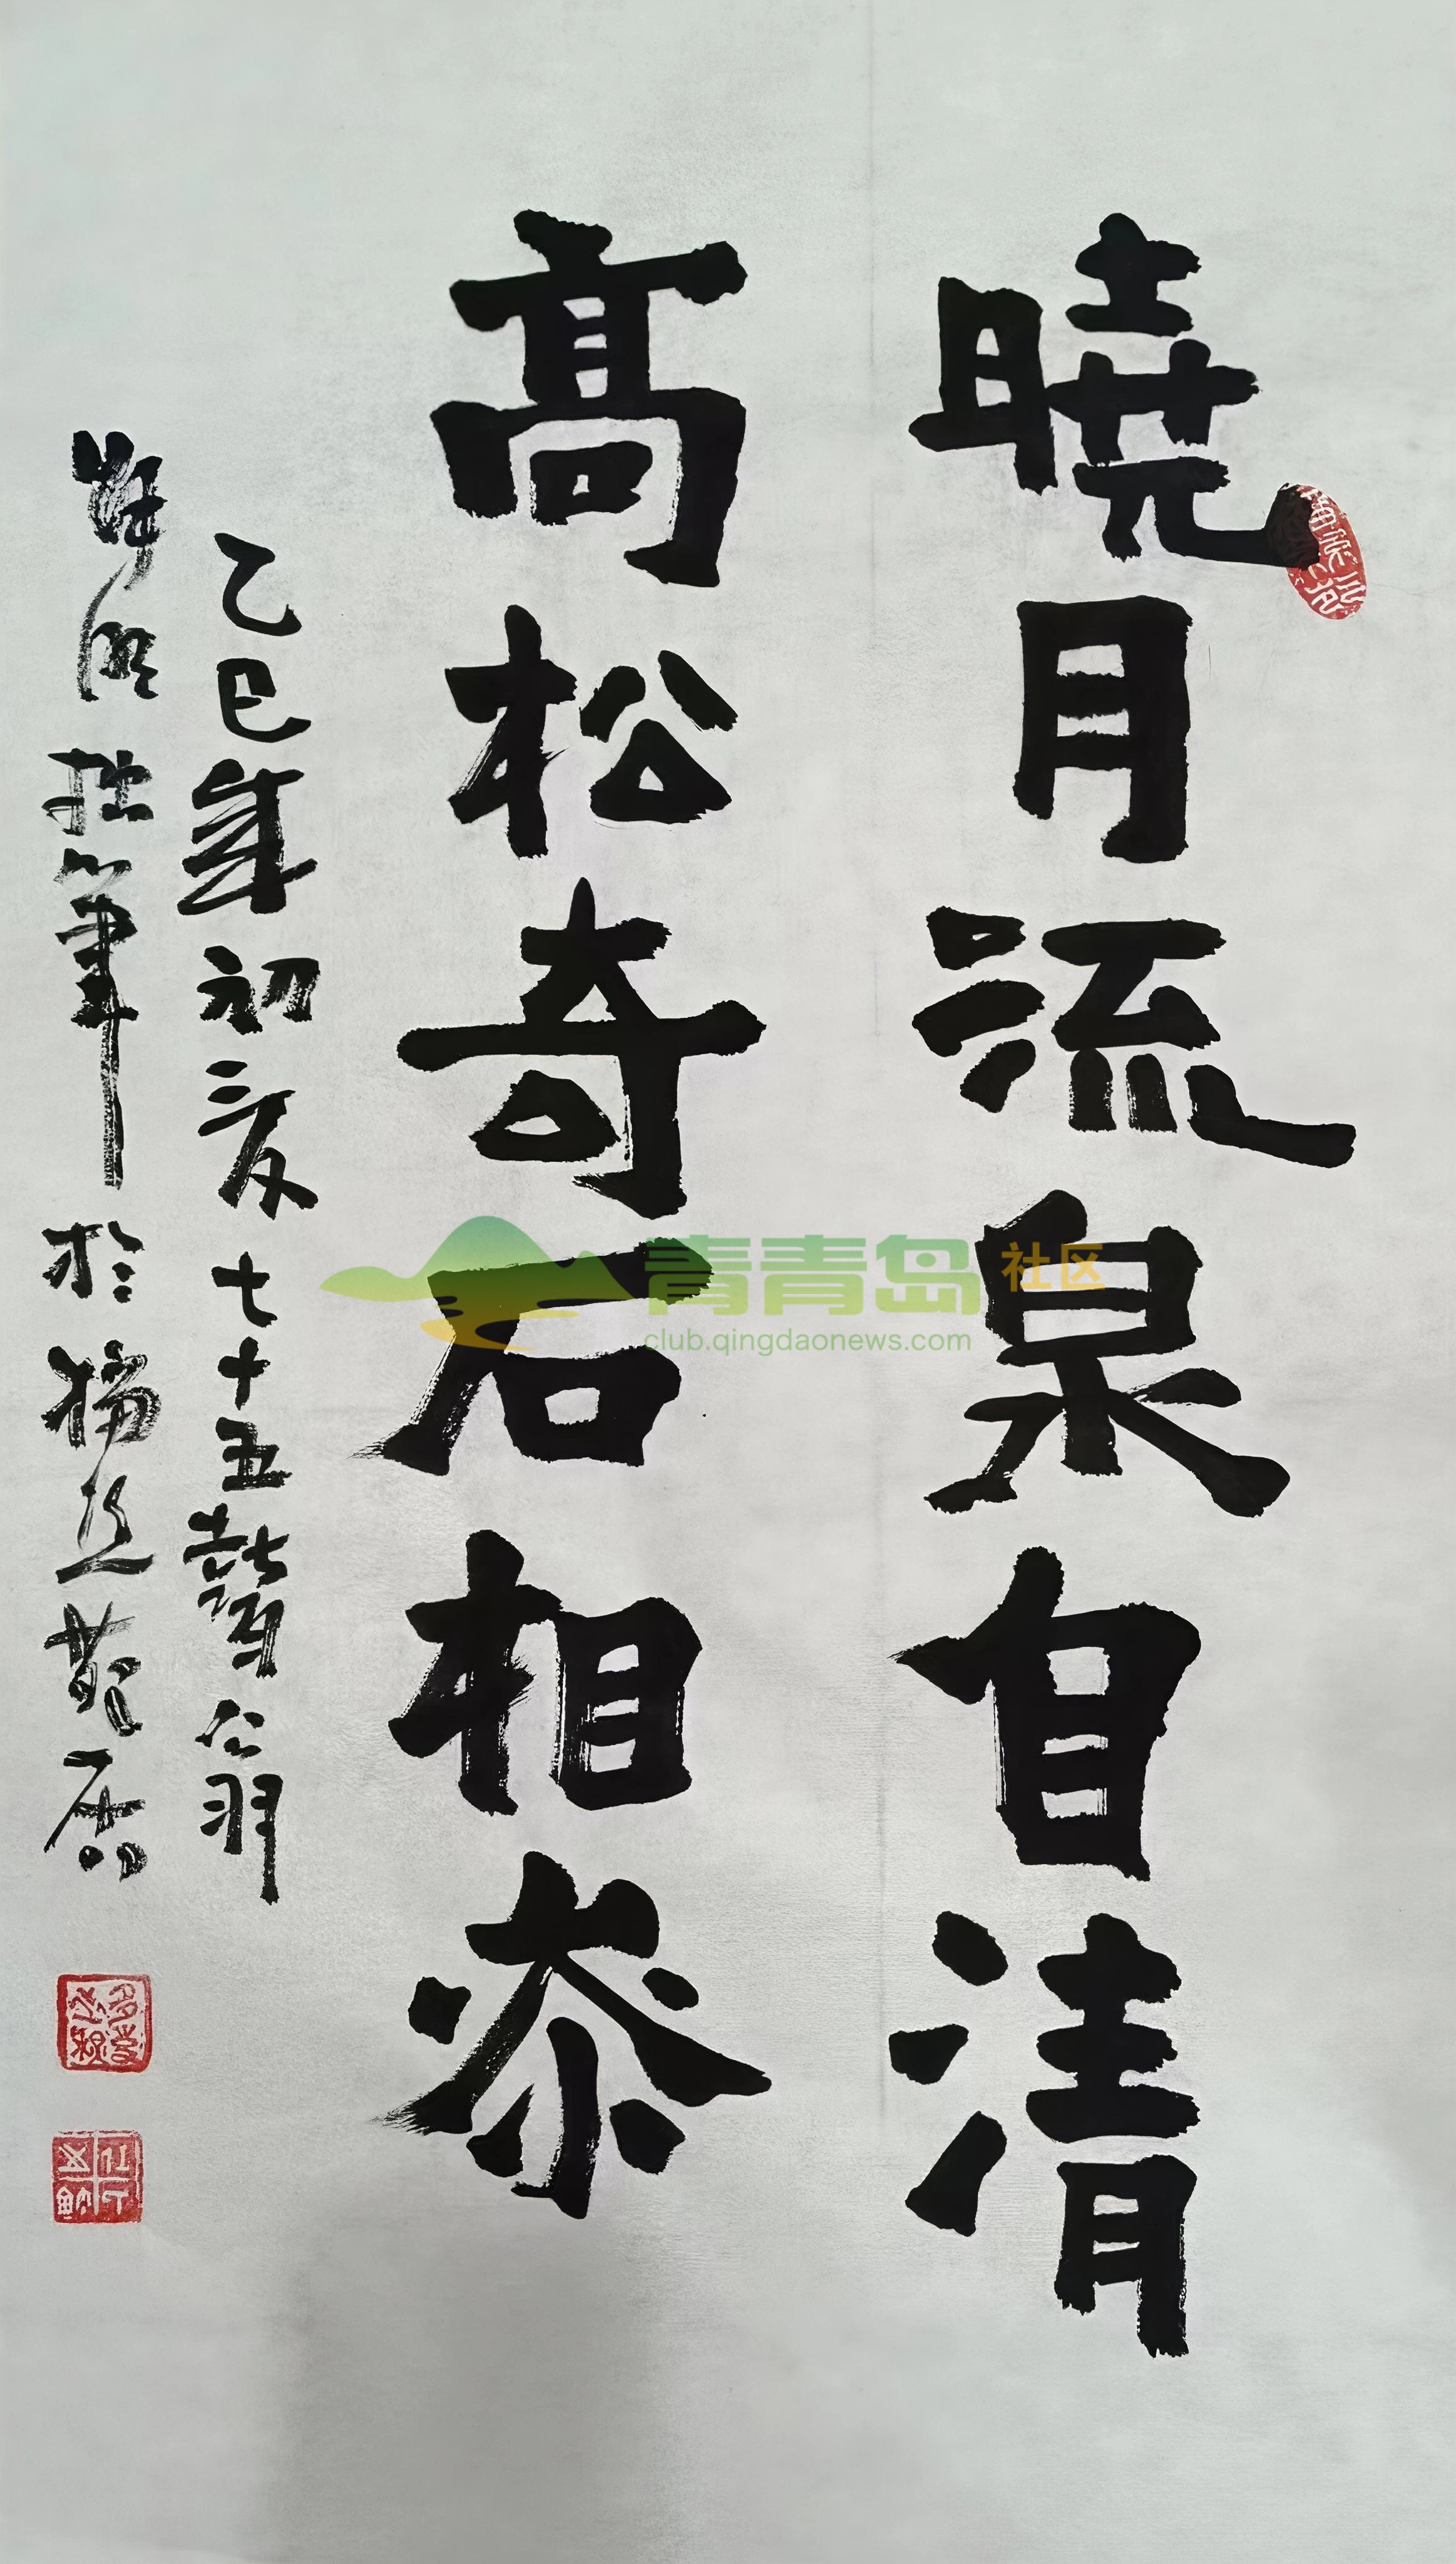 曉月流泉自清
高松奇石相恭
乙巳年初夏七十五聱公翁
拙筆於
青青岛社区
club.qingdaonews.com